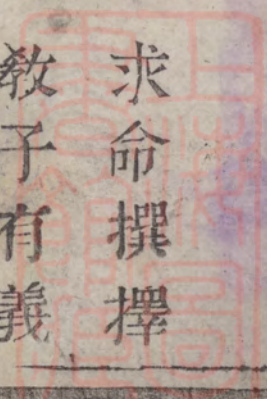 求命撰擇
教子有義